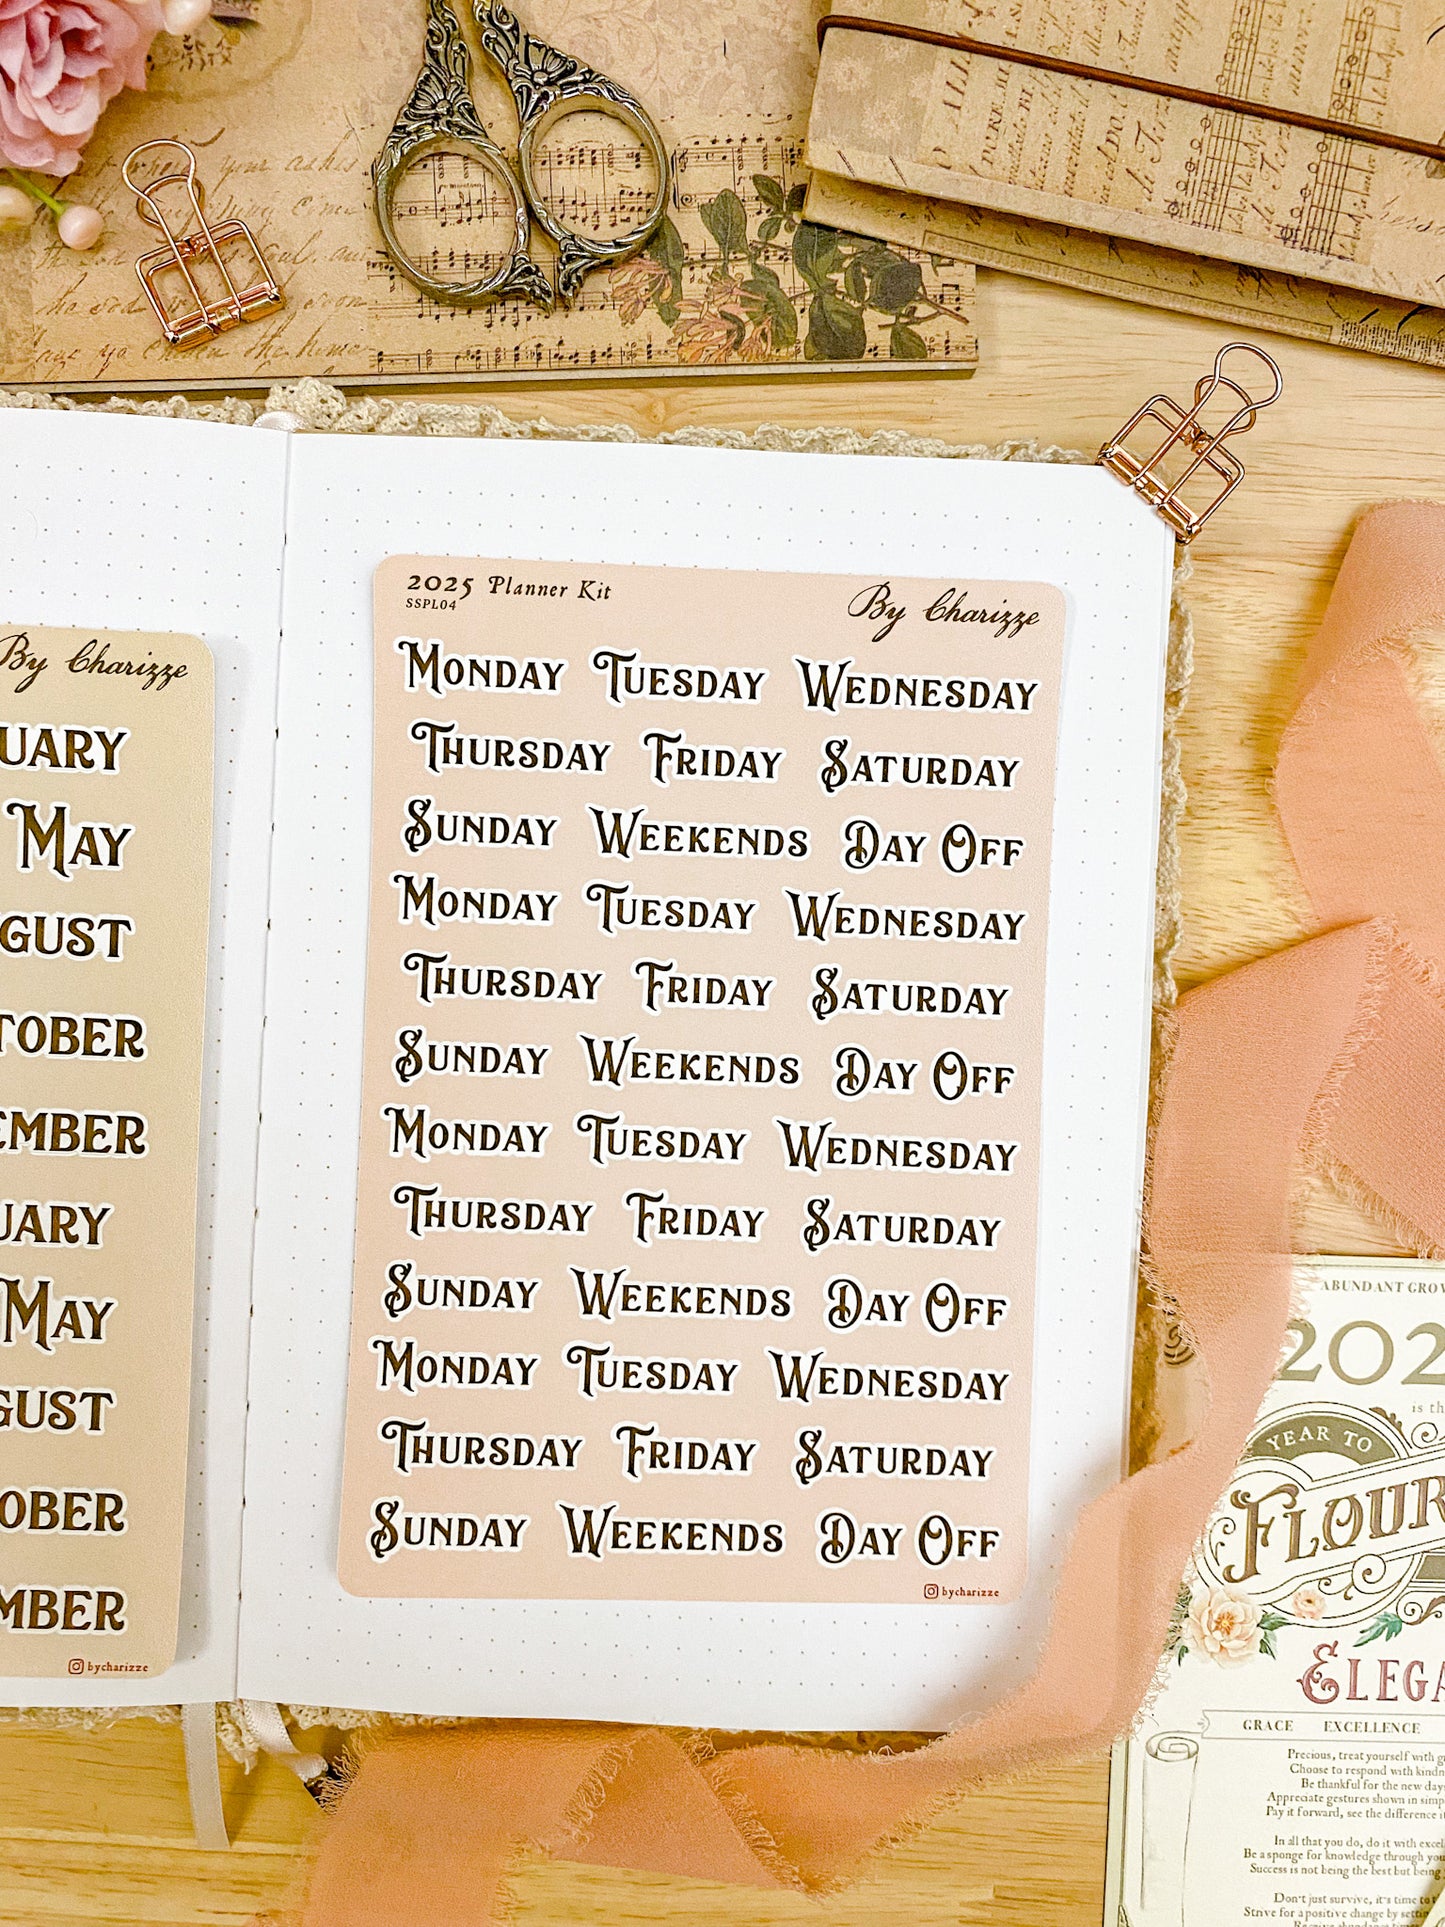 2025 Planner Kit
SSPL04
By Charizze
Monday Tuesday Wednesday
Thursday Friday Saturday
Sunday Weekends Day Off
Monday Tuesday Wednesday
Thursday Friday Saturday
Sunday Weekends Day Off
Monday Tuesday Wednesday
Thursday Friday Saturday
Sunday Weekends Day Off
Monday Tuesday Wednesday
Thursday Friday Saturday
Sunday Weekends Day Off
bycharizze
By Charizze
UARY
May
GUST
TOBER
EMBER
UARY
May
GUST
OBER
MBER
bycharizze
ABUNDANT GROW
202
is th
YEAR TO
FLOUR
ELEGA
GRACE EXCELLENCE
Precious, treat yourself with g
Choose to respond with kindn
Be thankful for the new day
Appreciate gestures shown in simp
Pay it forward, see the difference i
In all that you do, do it with excel
Be a sponge for knowledge through you
Success is not being the best but being
Don't just survive, it's time to
Strive for a positive change by settin